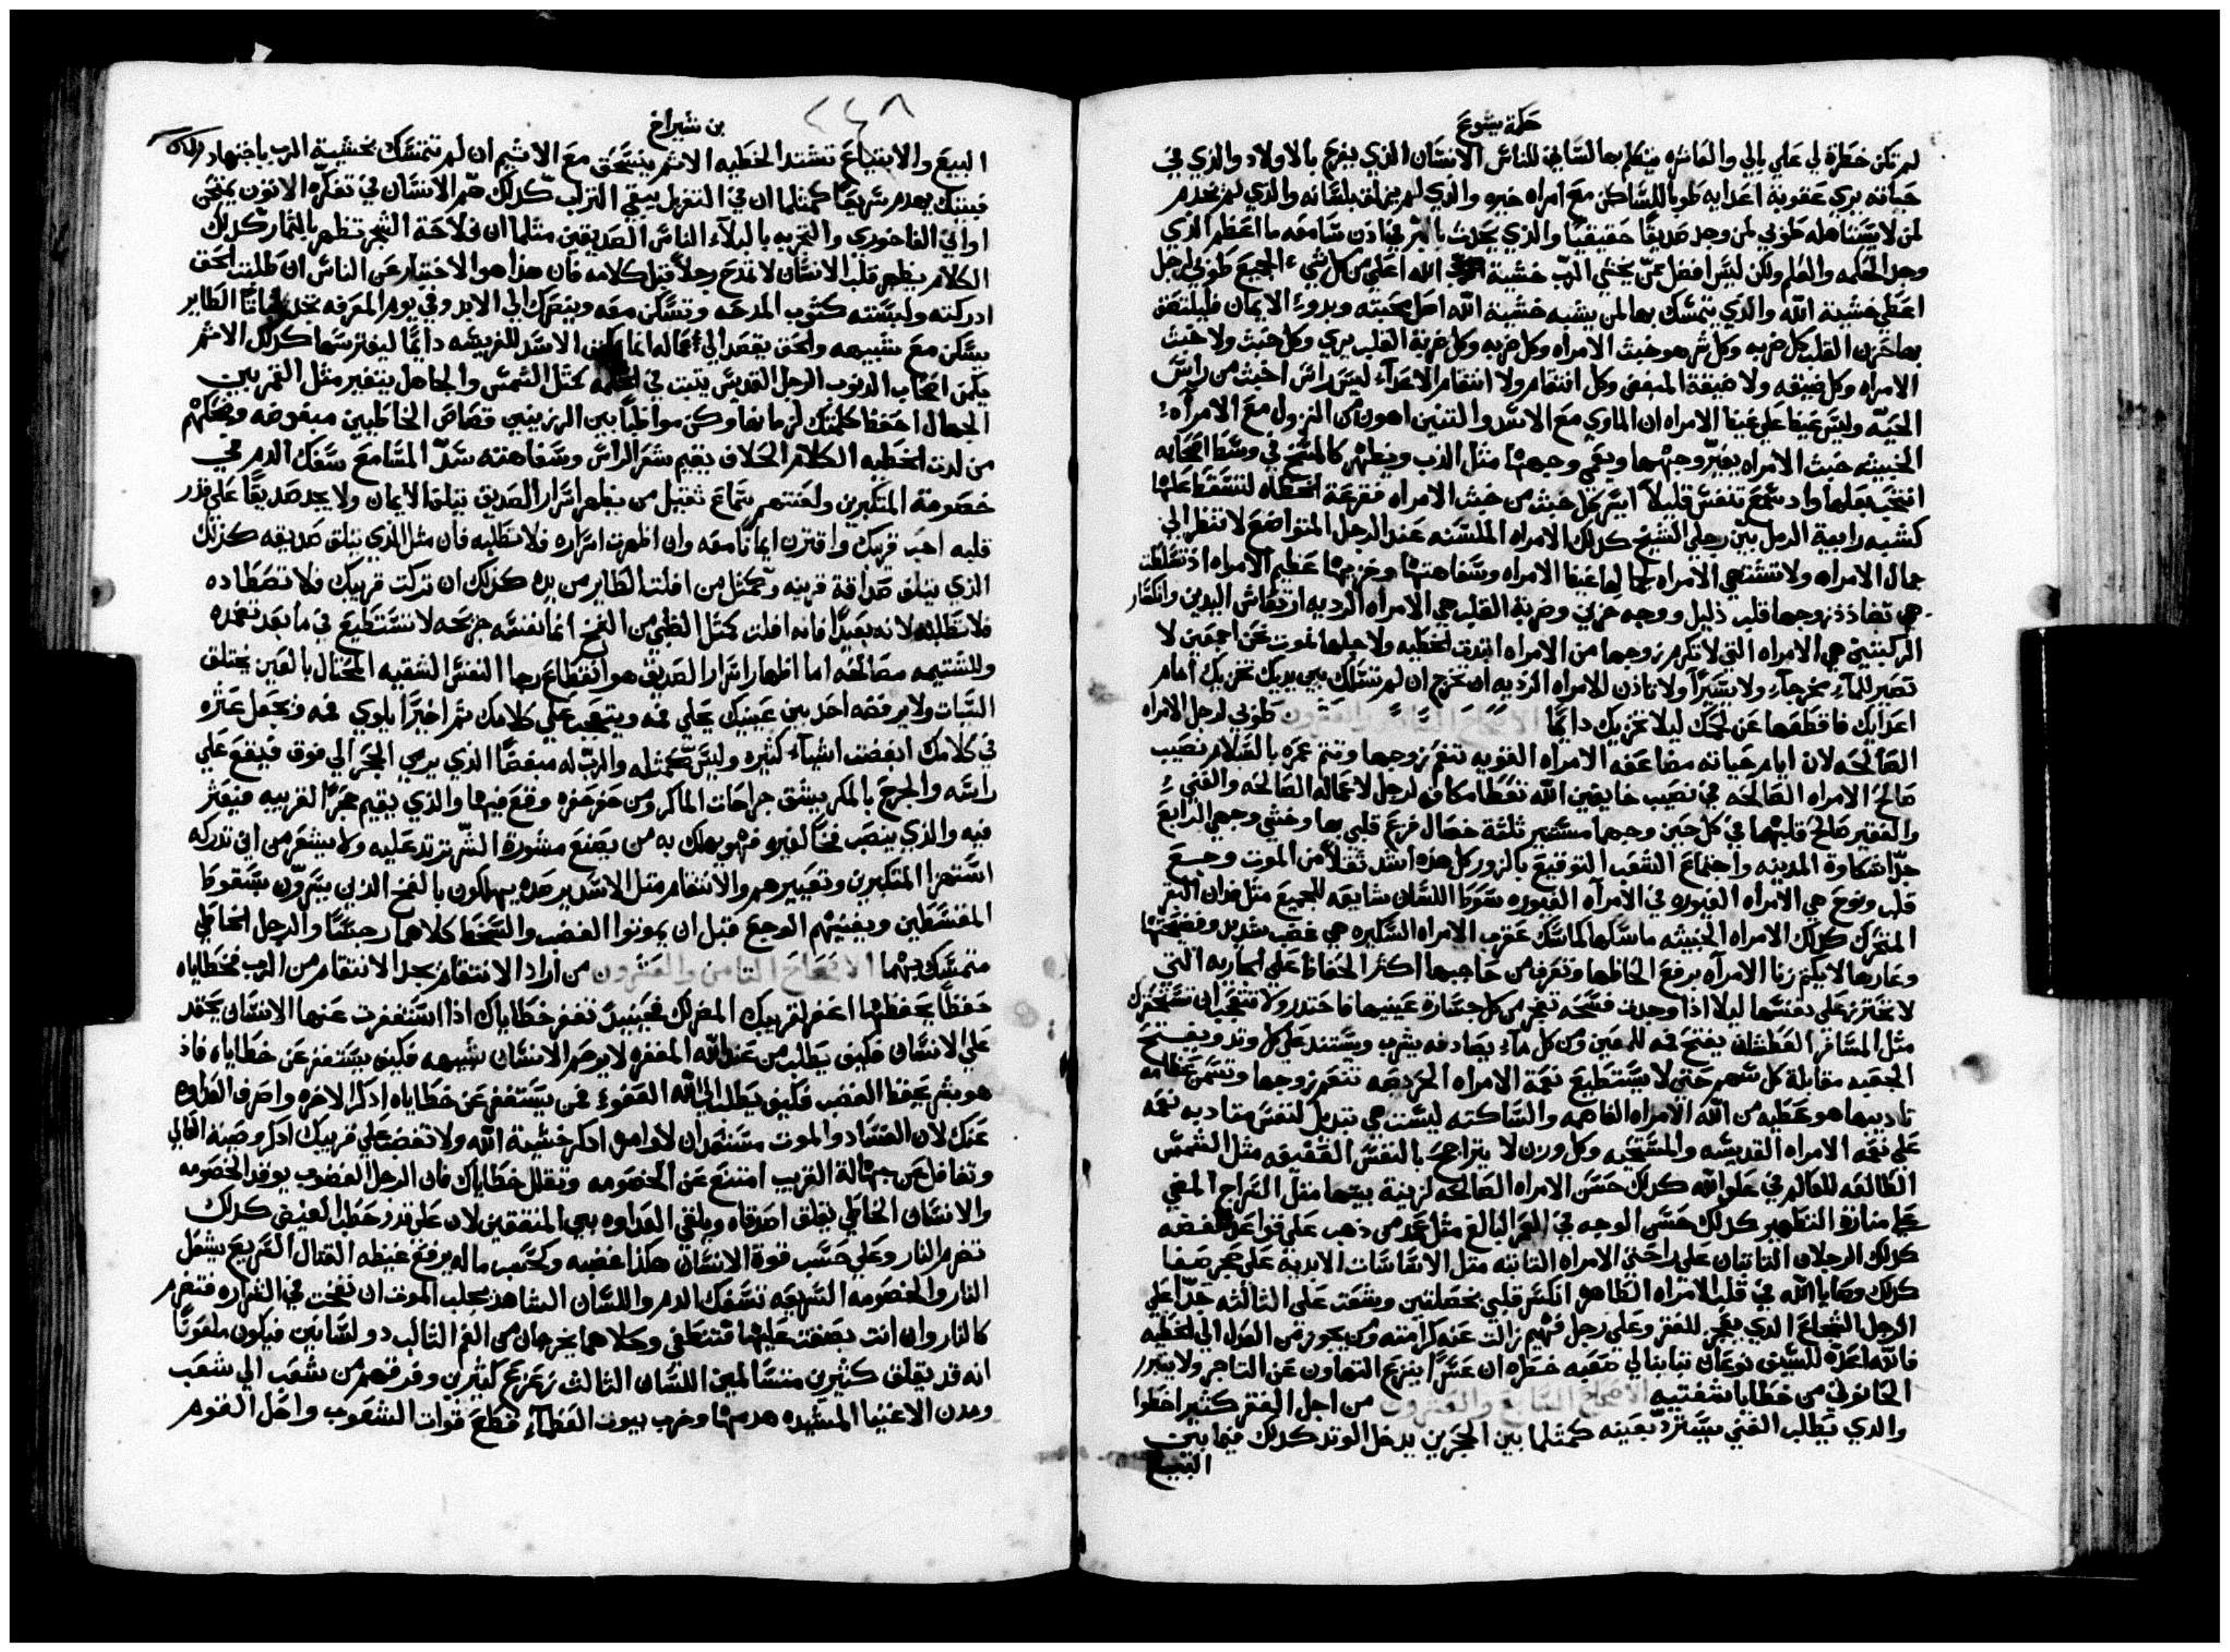 حكمة يشوع
لم تكن خطرة لي على بالي والعاشره يتكلم بها لساني للناس الانسان الذي يفرح بالاولاد والذي في
حياته يري عقوبة اعدايه طوبا للساكن مع امراه خبره والذي لم يزلق بلسانه والذي لم يخدم
لمن لا يستاهله طوبي لمن وجد صديقا حقيقيا والذي يحدث بالبر في اذن سامعه ما اعظم الذي
وجد الحكمه والعلم ولكن ليس افضل ممن يخشي الرب خشية الله اعلي من كل شي الجميع طوبي لرجل
اعطي خشية الله والذي يتمسك بها لمن يشبه خشية الله اصل محبته وبدوء الايمان فليلتصق
بها حزن القلب كل ضربه وكل شر هو خبث الامراه وكل ضربه وكل ضربة القلب يري وكل خبث ولا خبث
الامراه وكل ضيقه ولا ضيقة المبغض وكل انتقام ولا انتقام الاعداء ليس راس اخبث من راس
الحيه وليس غيظا علي غيظ الامراه ان الماوي مع الاسد والتنين اهون من النزول مع الامراه
الخبيثه خبث الامراه يغير وجهها ويعمي وجهها مثل الدب ويظهر كالمسح في وسط اصحابه
انتحب بعلها واد سمع تنفس قليلا ايسر كل خبث من خبث الامراه فقرعة الخطاه لتسقط عليها
كشبه رابية الرمل بين رجلي الشيخ كذلك الامراه الملسنه عند الرجل المتواضع لا تنظر الي
جمال الامراه ولا تشتهي الامراه لجمالها غيظ الامراه وسفاهتها وخزيها عظيم الامراه اذ تسلطت
هي تضادد زوجها قلب ذليل ووجه حزين وضربة القلب هي الامراه الرديه ارتعاش اليدين وانكسار
الركبتين هي الامراه التي لا تكرم زوجها من الامراه ابتدت الخطيه ولاجلها نموت نحن اجمعين لا
تصير للماء مخرجا ولا يسيرا ولا تاذن للامراه الرديه ان تخرج ان لم تسلك بين يديك تخزيك امام
اعدايك فاقطعها عن لحمك ليلا تخزيك دايما الاصحاح السادس والعشرون طوبي لرجل الامراه
الصالحه لان ايام حياته مضاعفه الامراه القويه تنعم زوجها وتتم عمره بالسلام نصيب
صالح الامراه الصالحه في نصيب خايفين الله تعطا مكافه لرجل لاعماله الصالحه والغني
والفقير صالح قلبهما في كل حين وجهما مستنير ثلثة خصال فزع قلبي بها وخشي وجهي الرابع
جدا شكاوة المدينه واجتماع الشعب التوقيع بالزور كل هذه اشد ثقلا من الموت وجع
قلب ونوح هي الامراه الغيوره في الامراه الغيوره سوط اللسان شايعه للجميع مثل فدان البقر
المتحرك كذلك الامراه الخبيثه ماسكها كماسك عقرب الامراه السكيره هي غضب شديد وفضيحتها
وعارها لا يكتم زنا الامراه برفع الحاظها وتعرف من حاجبها اكثر الحفاظ علي الجاريه التي
لا تحترز علي نفسها ليلا اذا وجدت فسحه تفجر من كل جسارة عينيها فاحتذر ولا تتعجب ان تستحقرك
مثل المسافر العطشان يفتح فمه للعين ومن كل ماء يصادفه يشرب ويستند علي كل وتد ويفتح
الجعبه مقابلة كل سهم حتي لا يستطيع نعمة الامراه الحريصه تنعم زوجها وتسمن عظامه
تاديبها هو عطيه من الله الامراه الفاهمه والساكته ليست هي تبديل لنفس متادبه نعمه
علي نعمه الامراه القديسه والمستحيه وكل وزن لا يتراجح بالنفس العفيفه مثل الشمس
الطالعه للعالم في علو الله كذلك حسن الامراه الصالحه لزينة بيتها مثل السراج المضي
علي منارة التطهير كذلك حسن الوجه في العمر البالغ مثل عمد من ذهب علي قواعد فضه
كذلك الرجلان الثابتان علي راحتي الامراه الثابته مثل الاساسات الابديه علي حجر صفا
كذلك وصايا الله في قلب الامراه الطاهره انكسر قلبي بخصلتين وشقت علي الثالثه جدا علي
الرجل الشجاع الذي يعجز للفقر وعلي رجل فهيم زالت عنه كرامته ومن يجوز من العدل الي الخطيه
فالله اعده للسيف نوعان تباينا لي صعبه خطره ان عسرا ينزع التهاون عن التاجر ولا يتبرر
الحانوتي من خطايا شفتيه الاصحاح السابع والعشرون من اجل الفقر كثير اخطوا
والذي يطلب الغني يسترد بعينه كمثلما بين الحجرين يدخل الوتد كذلك فيما بين
البيع
٢٤٨
بن شيراخ
البيع والابتياع تشتد الخطيه الاثم ينسحق مع الاثيم ان لم تتمسك بخشية الرب باجتهاد
فبيتك يهدم سريعا كمثلما ان في التغربل يبقي التراب كذلك هم الانسان في تفكره الاتون يمتحن
اواني الفاخوري والتجربه بالبلاء الناس الصديقين مثلما ان فلاحة الشجر تظهر بالثمار كذلك
الكلام يظهر قلب الانسان لا تمدح رجلا قبل كلامه فان هذا هو الاختبار عن الناس ان طلبت الحق
ادركته ولبسته كثوب المدحه وتسكن معه وينصرك الي الابد وفي يوم المعرفه تجد ثباتا الطاير
يسكن مع شبيهه والحق يقصد الي عماله انما يكمن الاسد للفريسه دايما ليفترسها كذلك الاثم
يكمن اصحاب الذنوب الرجل القديس يثبت في الحكمه كمثل الشمس والجاهل يتغير مثل القمر بين
الجهال احفظ كلمتك لزمانها وكن مواظبا بين الرزينين قصاص الخاطيين مبغوضه وضحكهم
من لذت الخطيه الكلام الحلاف يقيم شعر الراس وسفاهته سد المسامع سفك الدم في
خصومة المتكبرين ولعنتهم سماع ثقيل من يظهر اسرار الصديق يتلف الايمان ولا يجد صديقا علي قدر
قلبه احب قريبك واقترن ايمانا معه وان اظهرت اسراره فلا تطلبه فان مثل الذي يتلف صديقه كذلك
الذي يتلف صداقة قريبه وكمثل من افلت الطاير من يده كذلك ان تركت قريبك فلا تصطاده
فلا تطلبه لانه بعيدا فانه افلت كمثل الظبي من الفخ انما نفسه جريحه لا تستطيع في ما بعد تعصده
وللشتيمه مصالحه اما اظهار اسرار الصديق هو انقطاع رجا النفس الشقيه المحتال بالعين يختلق
السيات ولا يرفضه احد بين عينيك يحلي فمه ويتعجب علي كلامك ثم اخيرا يلوي فمه ويجعل عثره
في كلامك ابغضت اشياء كثيره وليس كمثله والرب له مبغضا الذي يرمي الحجر الي فوق فيقع علي
راسه والجرح بالمكر يشق جراحات الماكر ومن حفر حفره وقع فيها والذي يقيم حجرا لقريبه فيعثر
فيه والذي ينصب فخا لغيره فهو يهلك به من يصنع مشورة الشر ترتد عليه ولا يشعر من اين تدركه
استهزا المتكبرين وتعييرهم والانتقام مثل الاسد يرصده يهلكون بالفخ الذين يسرون بسقوط
المقسطين ويفنيهم الوجع قبل ان يموتوا الغضب والسخط كلاهما رجسا والرجل الخاطي
متمسك بهما الاصحاح الثامن والعشرون من اراد الانتقام يجد الانتقام من الرب فخطاياه
حفظا يحفظها اغفر لقريبك المضر لك فحينيذ تغفر خطاياك اذا استغفرت عنها الانسان يحقد
علي الانسان فكيف يطلب من عند الله المغفره لا يرحم الانسان شبيهه فكيف يستغفر عن خطاياه فاذ
هو بشر يحفظ الغضب فكيف يطلب الي الله العفو فمن يستغفر عن خطاياه اذكر الاخره واصرف العداوه
عنك لان الفساد والموت مستعدان لاوامره اذكر خشية الله ولا تغضب علي قريبك اذكر وصية العالي
وتغافل عن جهالة القريب امتنع عن الخصومه وتقلل خطاياك فان الرجل الغضوب يوقد الخصومه
والانسان الخاطي يقلق اصدقاه ويلقي العداوه بين المتفقين لان علي قدر حطب الغيض كذلك
تضرم النار وعلي حسب قوة الانسان هكذا غضبه وكحسب ماله يرفع غيظه القتال السريع يشعل
النار والخصومه السريعه تسفك الدم واللسان الشاهد يجلب الموت ان نفخت في الشراره فتضرم
كالنار وان انت بصقت عليها فتنطفي وكلاهما يخرجان من الفم الثالب ذو لسانين فيكون ملعونا
انه قد يقلق كثيرين متسالمين اللسان الثالث زعزع كثيرين وفرقهم من شعب الي شعب
ومدن الاغنيا المشيده هدمها وخرب بيوت العظماء قطع قوات الشعوب واحل القوم